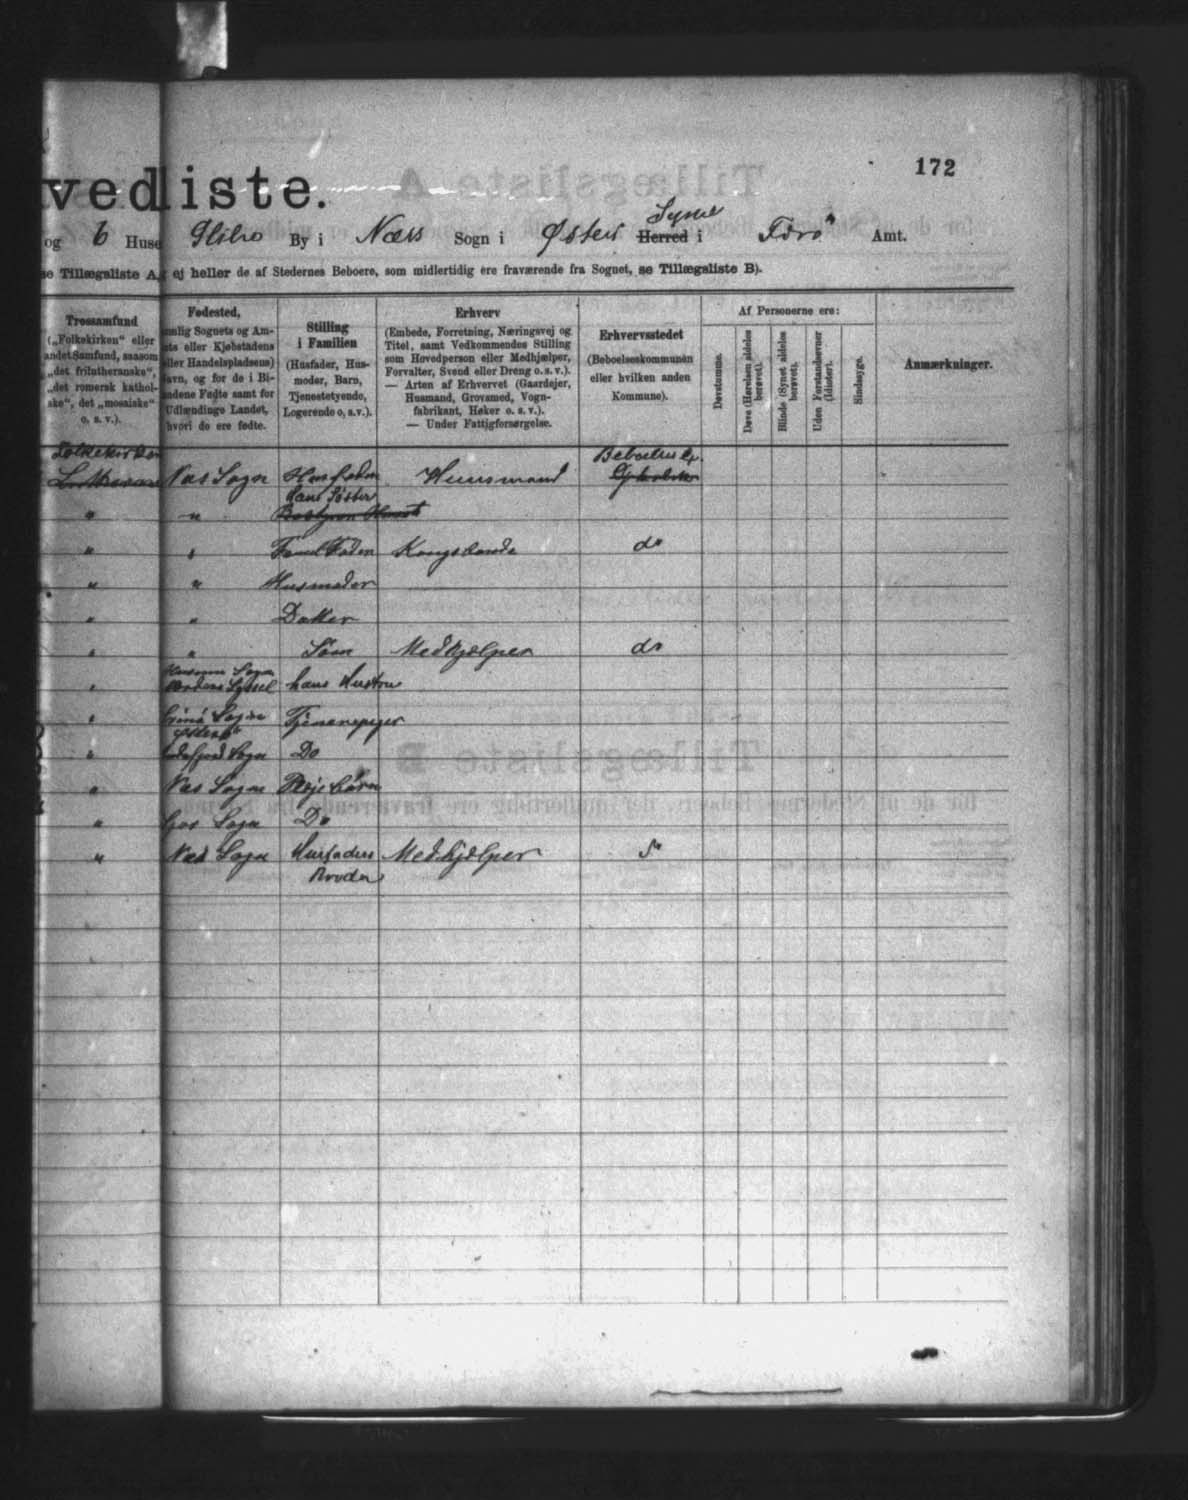 172
vedliste.
og 6 Huse Glibo By i Næs Sogn i Øster Syssel Herred i Færø Amt.
se Tillægsliste A, ej heller de af Stedernes Beboere, som midlertidig ere fraværende fra Sognet, se Tillægsliste B).
Trossamfund
(„Folkekirken“ eller
andet Samfund, saasom
„det frilutheranske“,
„det romersk kathol-
ske“, det „mosaiske“
o. s. v.).
Fødested,
mlig Sognets og Am-
ts eller Kjøbstadens
ller Handelspladsens)
avn, og for de i Bi-
ndene Fødte samt for
Udlændinge Landet,
hvori de ere fødte.
Stilling
i Familien
(Husfader, Hus-
moder, Barn,
Tjenestetyende,
Logerende o. s.v.).
Erhverv
(Embede, Forretning, Næringsvej og
Titel, samt Vedkommendes Stilling
som Hovedperson eller Medhjælper,
Forvalter, Svend eller Dreng o. s. v.).
— Arten af Erhvervet (Gaardejer,
Husmand, Grovsmed, Vogn-
fabrikant, Høker o. s. v.).
— Under Fattigforsørgelse.
Erhvervsstedet
(Beboelseskommunen
eller hvilken anden
Kommune).
Af Personerne ere:
Døvstumme.
Døve (Hørelsen aldeles
berøvet).
Blinde (Synet aldeles
berøvet).
Uden Forstandsevner
(Idioter).
Sindssyge.
Anmærkninger.
Folkekirken
Næs Sogn Husfader Huusmand
hans Søster
" "
" " Kongsbonde do
" " Husmoder
" " Datter
" " Søn Medhjælper do
" Sogn
Nordens Syssel hans Hustru
" Sogn Tjenerepiger
" Sogn Do
" Næs Sogn Plejebørn
" Sogn Do
" Næs Sogn Husfaders Medhjælper do
Broder